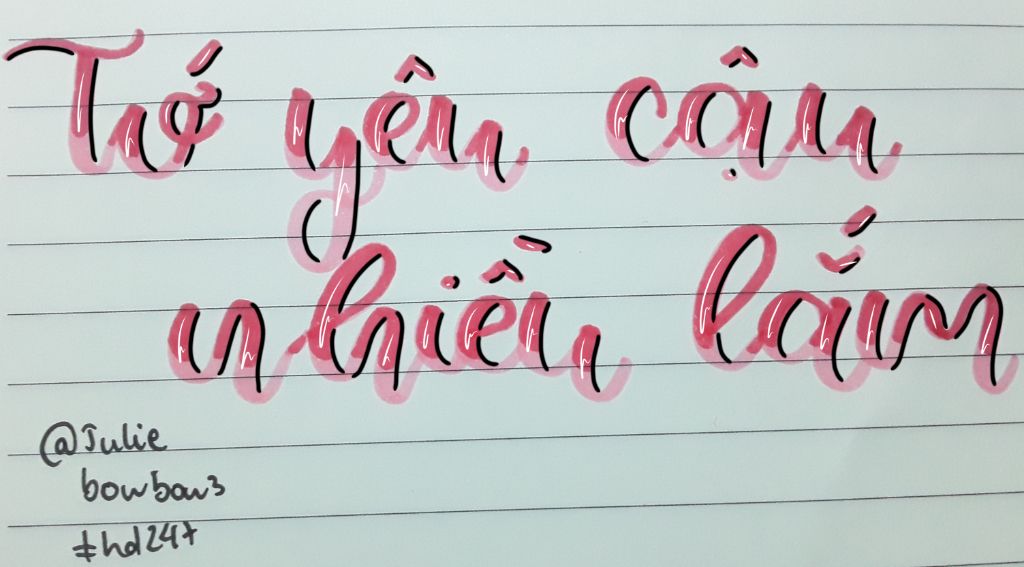 Tớ yêu cậu
nhiều lắm
@Julie
bowbow3
#hd247